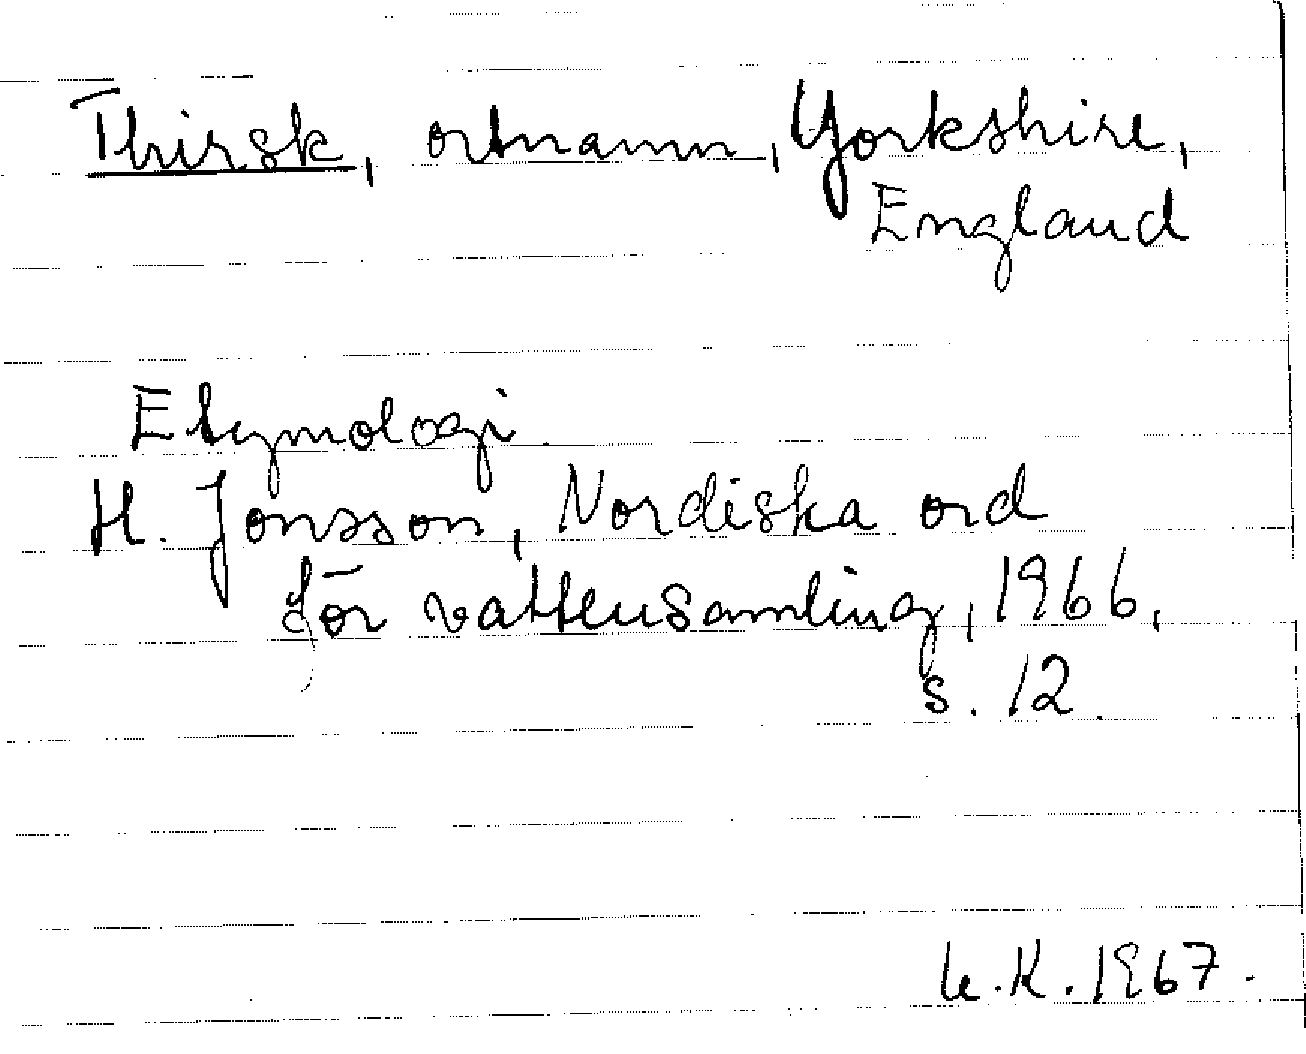 Thirsk, ortnamn, Yorkshire,
England
Etymologi
H. Jonsson, Nordiska ord
för vattensamling, 1966,
s. 12.
K. 1967.